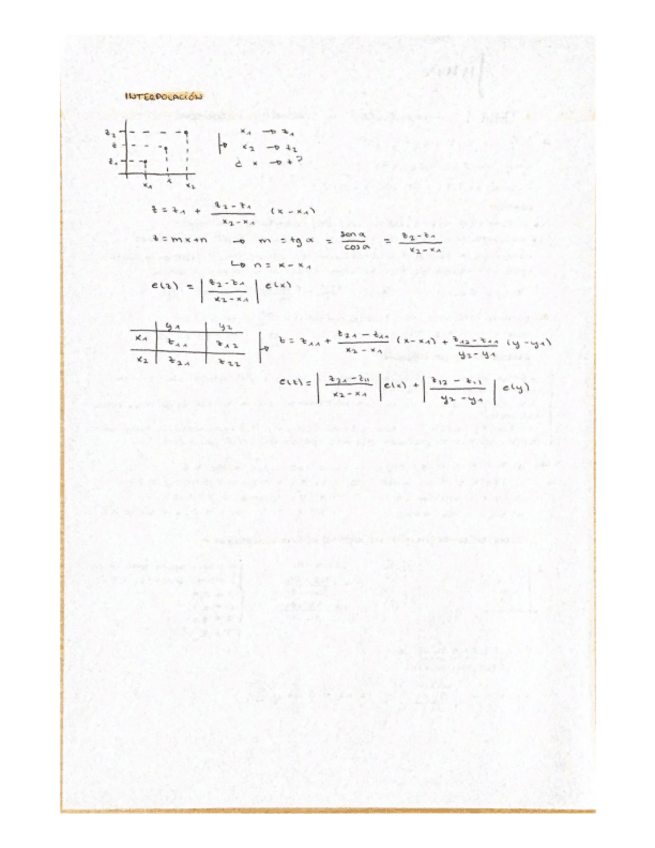 INTERPOLACIÓN
z₂
z
z₁
x₁ x x₂
x₁ → z₁
x₂ → z₂
¿ x → z?
z = z₁ + (z₂ - z₁)/(x₂ - x₁) (x - x₁)
z = mx + n → m = tg α = sen α/cos α = (z₂ - z₁)/(x₂ - x₁)
↳ n = x - x₁
e(z) = |(z₂ - z₁)/(x₂ - x₁)| e(x)
y₁ y₂
x₁ z₁₁ z₁₂
x₂ z₂₁ z₂₂
z = z₁₁ + (z₂₁ - z₁₁)/(x₂ - x₁) (x - x₁) + (z₁₂ - z₁₁)/(y₂ - y₁) (y - y₁)
e(z) = |(z₂₁ - z₁₁)/(x₂ - x₁)| e(x) + |(z₁₂ - z₁₁)/(y₂ - y₁)| e(y)